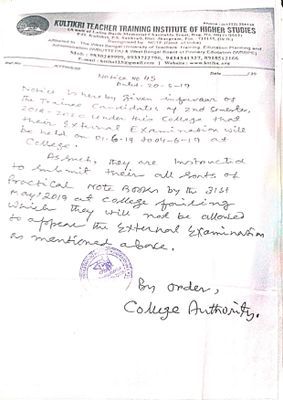 KULTIKRI TEACHER TRAINING INSTITUTE OF HIGHER STUDIES
The West Bengal University of Teachers' Training, Education Planning and
Notice No 45
Dated: 20-5-19
Notice is hereby given infavour of
the Trainee Candidates of 2nd Semester,
2018-2020 under this College that
their External Examination will
be held on 01-6-19 to 04-6-19 at
College.
As such, they are instructed
to submit their all sorts of
Practical Note Books by the 31st
May, 2019 at College failing
which they will not be allowed
to appear the External Examination
as mentioned above.
By order,
College Authority.